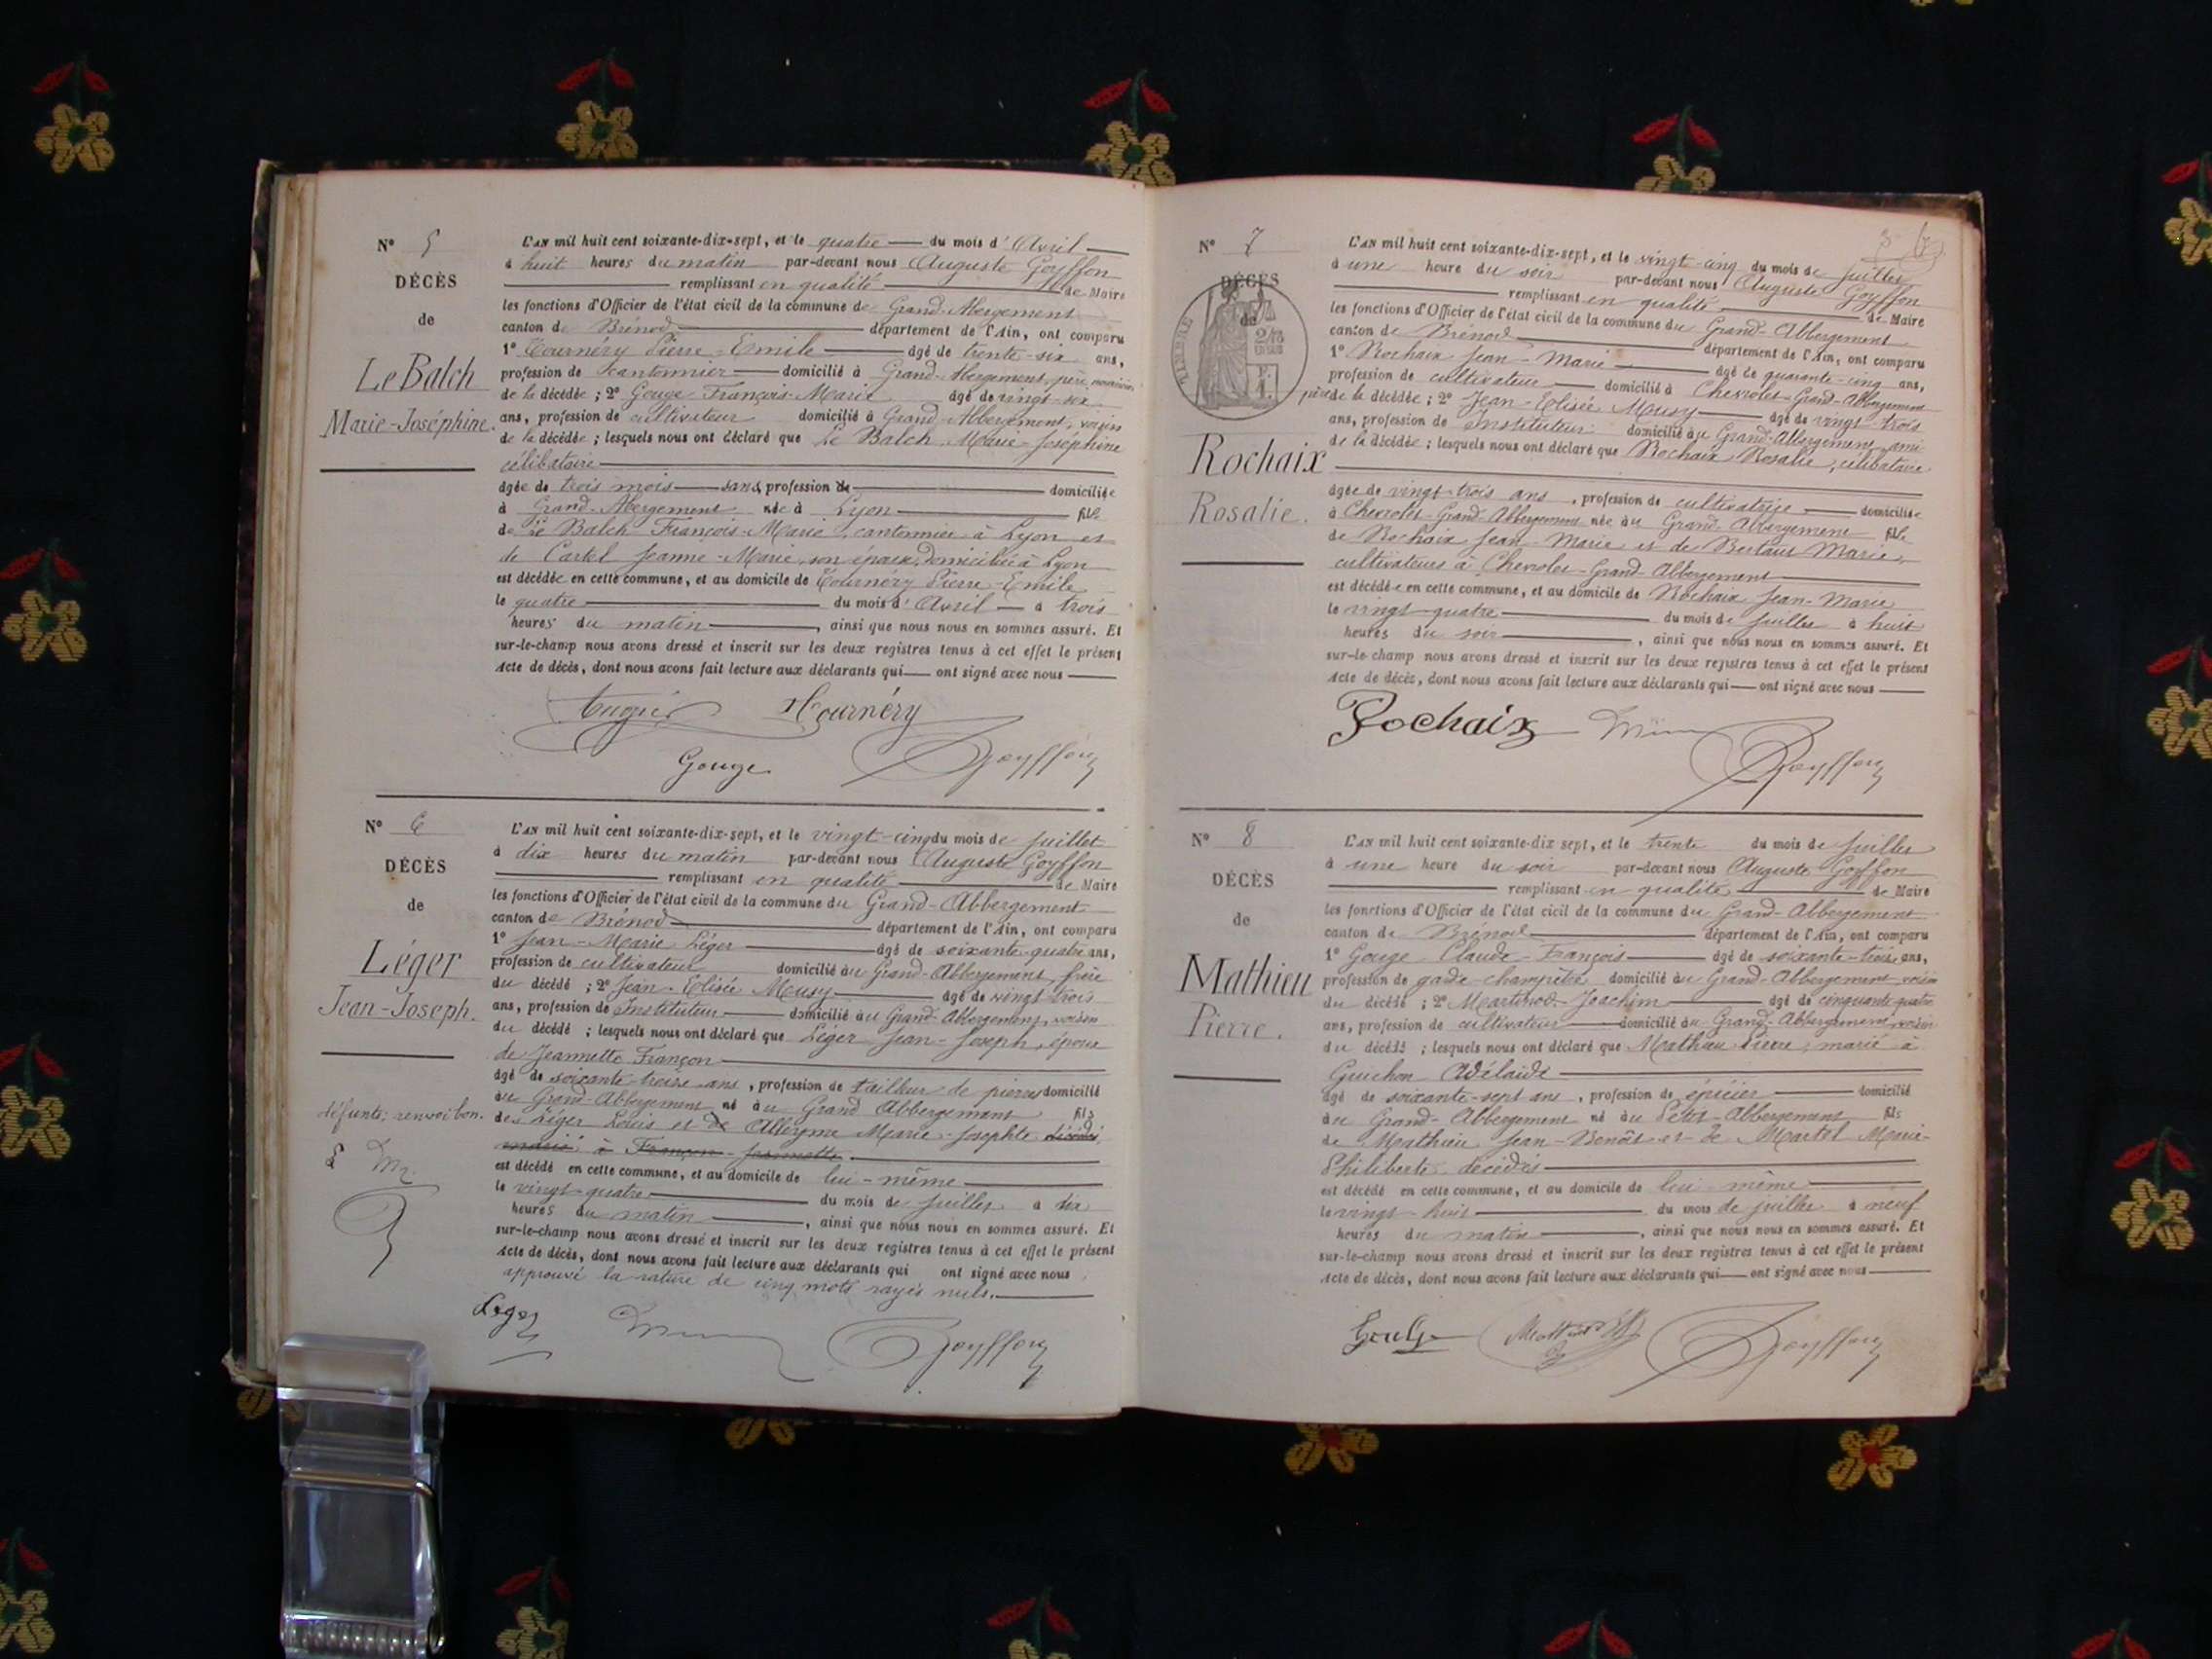 N° 5
DÉCÈS
de
Le Balch
Marie-Joséphine.
L'AN mil huit cent soixante-dix-sept, et le quatre du mois d'Avril
à huit heures du matin par-devant nous Auguste Goyffon
remplissant en qualité de Maire
les fonctions d'Officier de l'état civil de la commune de Grand-Abergement
canton de Brénod département de l'Ain, ont comparu
1° Tournéry Pierre-Emile âgé de trente-six ans,
profession de cantonnier domicilié à Grand-Abergement, père nourricier
de la décédée ; 2° Gouge François-Marie âgé de vingt-six
ans, profession de cultivateur domicilié à Grand-Abbergement, voisin
de la décédée ; lesquels nous ont déclaré que Le Balch Marie-Joséphine
célibataire
âgée de trois mois sans profession de domiciliée
à Grand-Abergement née à Lyon fille
de Le Balch François-Marie, cantonnier à Lyon et
de Cartel Jeanne-Marie, son épouse, domiciliée à Lyon
est décédée en cette commune, et au domicile de Tournéry Pierre-Emile
le quatre du mois d'Avril à trois
heures du matin, ainsi que nous nous en sommes assuré. Et
sur-le-champ nous avons dressé et inscrit sur les deux registres tenus à cet effet le présent
Acte de décès, dont nous avons fait lecture aux déclarants qui ont signé avec nous
Tournéry
Gouge Goyffon
N° 6
DÉCÈS
de
Léger
Jean-Joseph.
défunts; renvoi bon.
L'AN mil huit cent soixante-dix-sept, et le vingt-cinq du mois de juillet
à dix heures du matin par-devant nous Auguste Goyffon
remplissant en qualité de Maire
les fonctions d'Officier de l'état civil de la commune du Grand-Abbergement
canton de Brénod département de l'Ain, ont comparu
1° Jean-Marie Léger âgé de soixante-quatre ans,
profession de cultivateur domicilié au Grand-Abbergement, frère
du décédé ; 2° Jean-Elisée Musy âgé de vingt-trois
ans, profession de Instituteur domicilié au Grand-Abbergement, voisin
du décédé ; lesquels nous ont déclaré que Léger Jean-Joseph, époux
de Jeannette Françon
âgé de soixante-treize ans, profession de tailleur de pierres domicilié
au Grand-Abbergement né au Grand Abbergement fils
de Léger Louis et de Alleyme Marie-Josephte
marié à Françon Jeannette
est décédé en cette commune, et au domicile de lui-même
le vingt-quatre du mois de juillet à dix
heures du matin, ainsi que nous nous en sommes assuré. Et
sur-le-champ nous avons dressé et inscrit sur les deux registres tenus à cet effet le présent
Acte de décès, dont nous avons fait lecture aux déclarants qui ont signé avec nous
approuvé la rature de cinq mots rayés nuls.
Léger Goyffon
N° 7
DÉCÈS
de
Rochaix
Rosalie.
L'AN mil huit cent soixante-dix-sept, et le vingt-cinq du mois de juillet
à une heure du soir par-devant nous Auguste Goyffon
remplissant en qualité de Maire
les fonctions d'Officier de l'état civil de la commune du Grand-Abbergement
canton de Brénod département de l'Ain, ont comparu
1° Rochaix Jean-Marie âgé de quarante-cinq ans,
profession de cultivateur domicilié à Chevroles-Grand-Abbergement
père de la décédée ; 2° Jean-Elisée Musy âgé de vingt-trois
ans, profession de Instituteur domicilié au Grand-Abbergement, ami
de la décédée ; lesquels nous ont déclaré que Rochaix Rosalie, célibataire
âgée de vingt-trois ans, profession de cultivatrice domiciliée
à Chevroles-Grand-Abbergement née au Grand-Abbergement fille
de Rochaix Jean-Marie et de Berlaut Marie,
cultivateurs à Chevroles-Grand-Abbergement
est décédée en cette commune, et au domicile de Rochaix Jean-Marie
le vingt-quatre du mois de juillet à huit
heures du soir, ainsi que nous nous en sommes assuré. Et
sur-le-champ nous avons dressé et inscrit sur les deux registres tenus à cet effet le présent
Acte de décès, dont nous avons fait lecture aux déclarants qui ont signé avec nous
Rochaix Goyffon
N° 8
DÉCÈS
de
Mathieu
Pierre.
L'AN mil huit cent soixante-dix sept, et le trente du mois de juillet
à une heure du soir par-devant nous Auguste Goyffon
remplissant en qualité de Maire
les fonctions d'Officier de l'état civil de la commune du Grand-Abbergement
canton de Brénod département de l'Ain, ont comparu
1° Gouge Claude-François âgé de soixante-treize ans,
profession de garde-champêtre domicilié au Grand-Abbergement, voisin
du décédé ; 2° Martinod Joachim âgé de cinquante-quatre
ans, profession de cultivateur domicilié au Grand-Abbergement, voisin
du décédé ; lesquels nous ont déclaré que Mathieu Pierre, marié à
Guichon Adélaïde
âgé de soixante-sept ans, profession de épicier domicilié
au Grand-Abbergement né au Petit-Abbergement fils
de Mathieu Jean-Benoît et de Martel Marie-
Philiberte décédés
est décédé en cette commune, et au domicile de lui-même
le vingt-huit du mois de juillet à neuf
heures du matin, ainsi que nous nous en sommes assuré. Et
sur-le-champ nous avons dressé et inscrit sur les deux registres tenus à cet effet le présent
Acte de décès, dont nous avons fait lecture aux déclarants qui ont signé avec nous
Gouge Goyffon